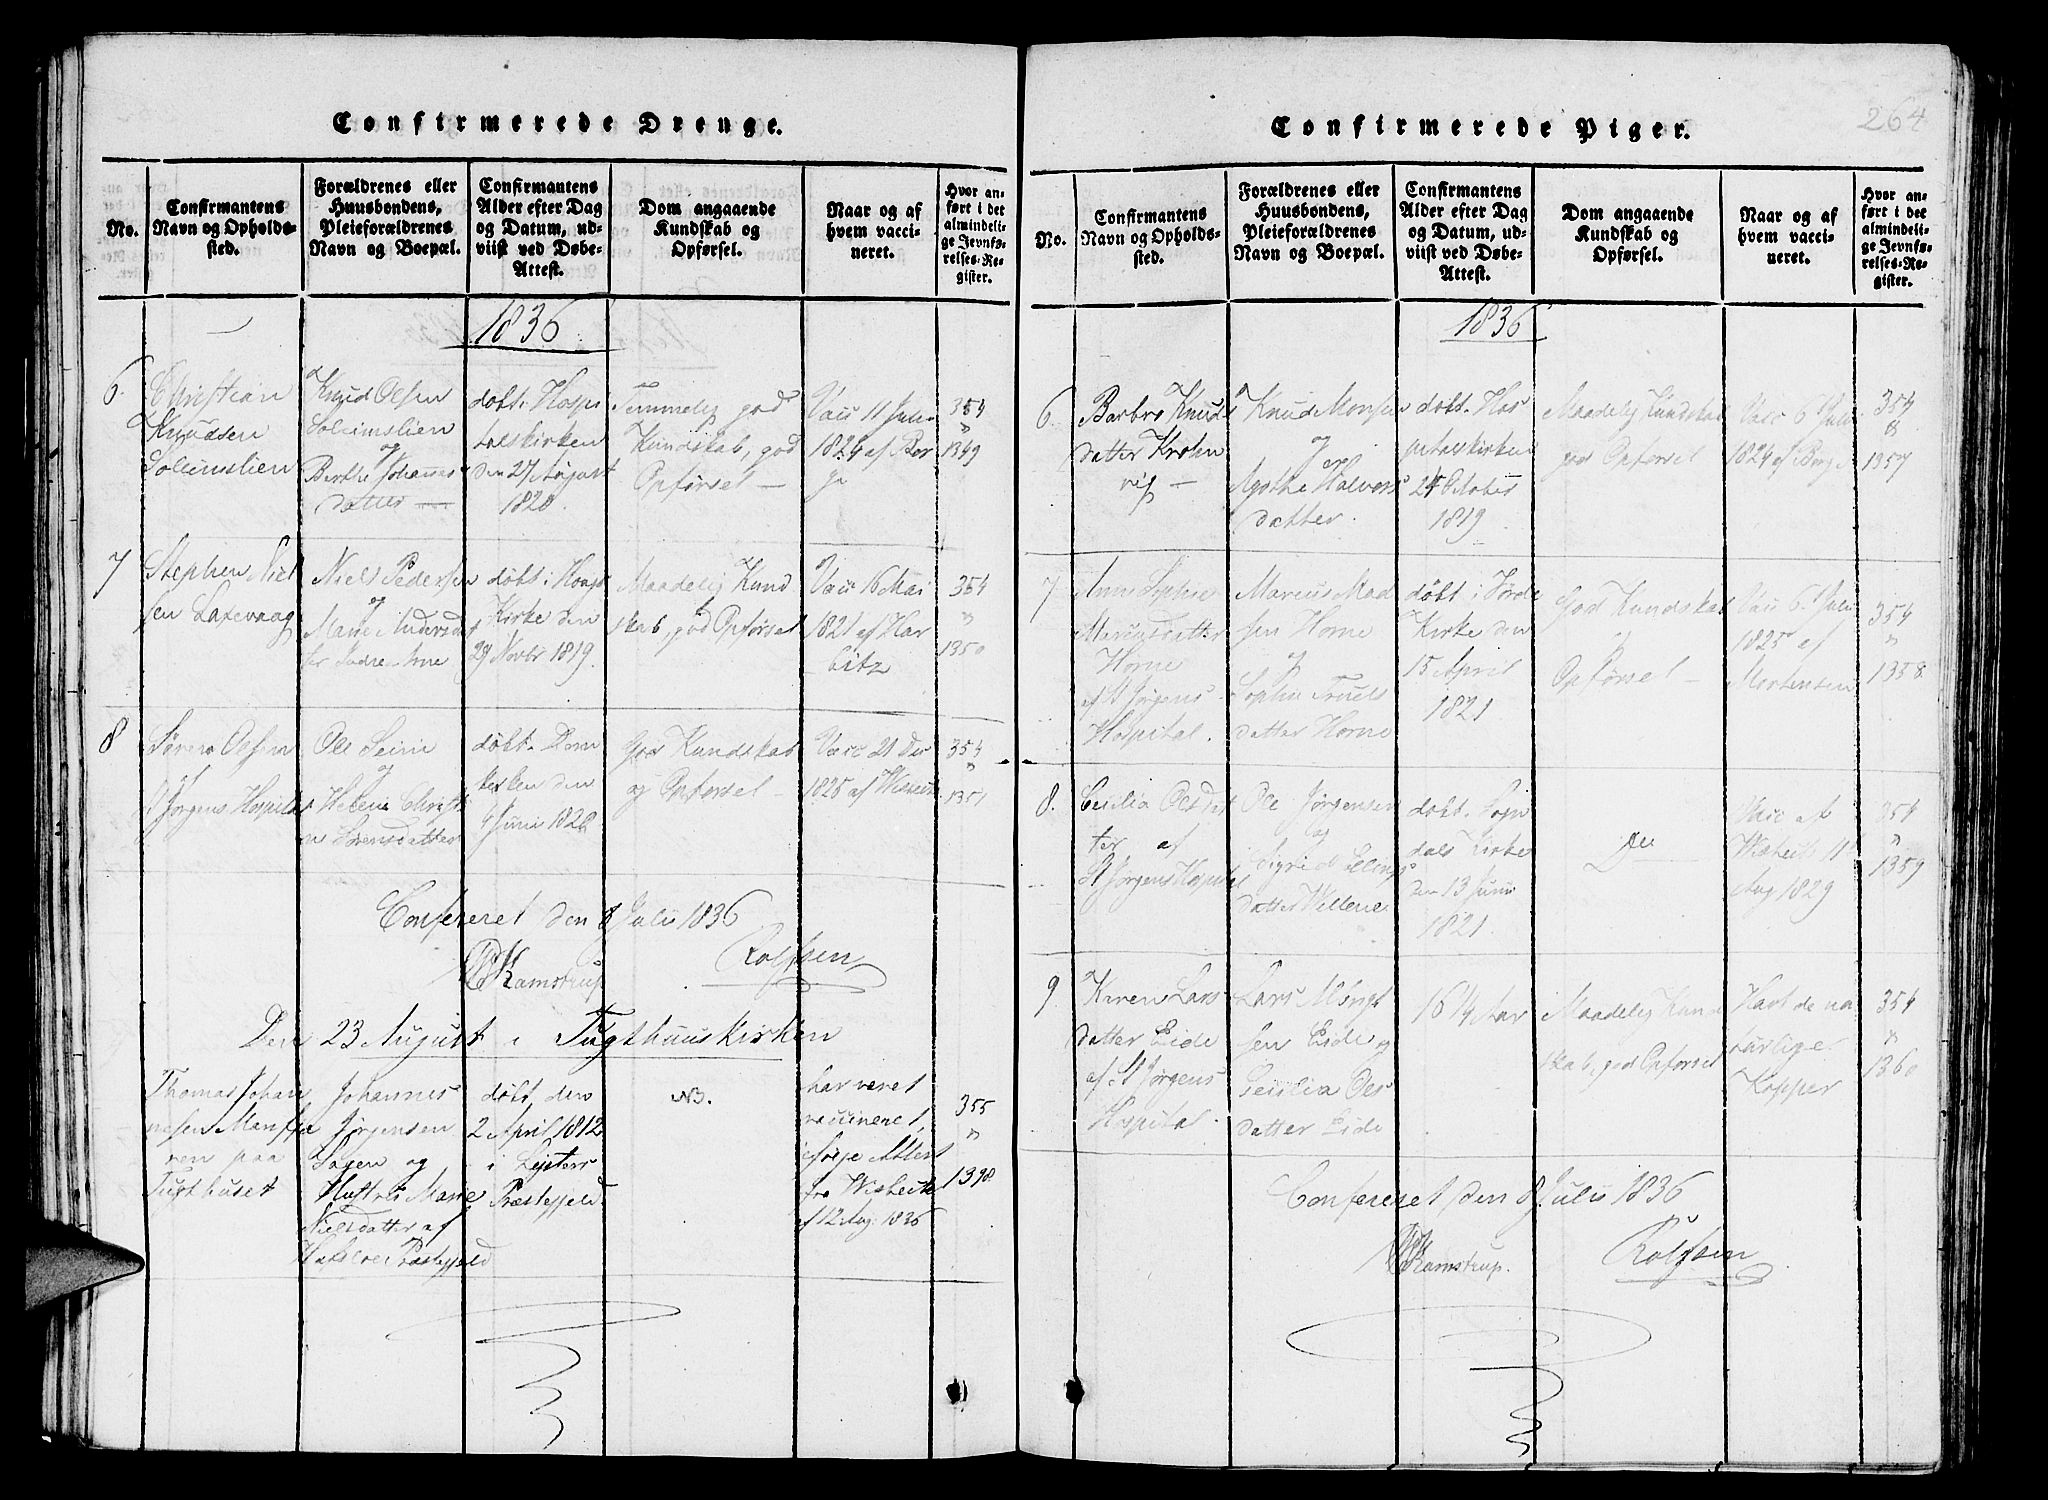 Confirmerede Drenge.
No.
Confirmantens
Navn og Opholds-
sted.
Forældrenes eller
Huusbondens,
Pleieforældrenes
Navn og Boepæl.
Confirmantens
Alder efter Dag
og Datum, ud-
viist ved Døbe-
Attest.
Dom angaaende
Kundskab og
Opførsel.
Naar og af
hvem vacci-
neret.
Hvor an-
ført i det
almindeli-
ge Jevnfø-
relses-Re-
gister.
1836
6.
Christian
Knudsen
Knud Olsen
og
Berthe Johannes
datter
døbt i Hospi
talskirken
den 27 August
1820
Temmelig god
Kundskab, god
Opførsel
Vacc 11 Juli
1824 af Bor
ge
354
"
1349
7
Stephen Niel
sen Laxevaag
Niels Pedersen
og
Marie Andersdat
ter Indre Arne
døbt i Hougs
Kirke den
29 Novbr 1819.
Maadelig Kund
skab, god Opførsel
Vacc 16 Mai
1821 af Har
bitz
354
"
1350
8
Søren Olsen
St Jørgens Hospital
Ole
og
Helene Christi
ne Sørensdatter
døbt i Dom
kirken den
4 Juni 1820
God Kundskab
og Opførsel
Vacc 21 Dec
1825 af Wisbech
354
"
1351
Confereret den 8 Julii 1836
Kamstrup
Rolfsen
Den 23 August i Tugthuuskirken
Thomas Johan
nesen
ren paa
Tugthuset
Johannes
Jørgensen
og
Hustru Marie
Nielsdatter af
Præstegjeld
døbt den
2 April 1812
i Lysters
Præstegjeld
NB.
har været
vaccineret,
ifølge Attest
fra Wisbech
af 12 Aug. 1836
355
"
1398
264
Confirmerede Piger.
No.
Confirmantens
Navn og Opholds-
sted.
Forældrenes eller
Huusbondens,
Pleieforældrenes
Navn og Boepæl.
Confirmantens
Alder efter Dag
og Datum, ud-
viist ved Døbe-
Attest.
Dom angaaende
Kundskab og
Opførsel.
Naar og af
hvem vacci-
neret.
Hvor an-
ført i det
almindeli-
ge Jevnfø-
relses-Re-
gister.
1836
6
Barbro Knuds
datter Krohn
vig
Knud Monsen
og
Agathe Halvors
datter
døbt i Hos
pitalskirken
24 October
1819
Maadelig Kundskab
god Opførsel
Vacc 6 Juli
1824 af Borge
354
"
1357
7
Anne Sophie
Mariusdatter
Horne
af St Jørgens
Hospital.
Marius Mad
sen Horne
og
Sophie Truels
datter Horne
døbt i Førde
Kirke den
15 April
1821
God Kundskab
og
Opførsel
Vacc 6. Juli
1825 af
Mortensen
354
"
1358
8.
Cecilia Olsdat
ter af
St Jørgens Hospital
Ole Jørgensen
og
Sigrid Ellings
datter
døbt i Sogn
dals Kirke
den 13 Juni
1821
Do
Vacc af
Wisbech 11
Aug 1829
354
"
1359
9
Karen Lars
datter Eide
af St Jørgens
Hospital.
Lars Albrigt
sen Eide og
Cecilia Ols
datter Eide
16 1/4 Aar
Maadelig Kund
skab, god Opførsel
Havt de na
turlige
Kopper
354
"
1360
Confereret den 8 Julii 1836
Kamstrup.
Rolfsen